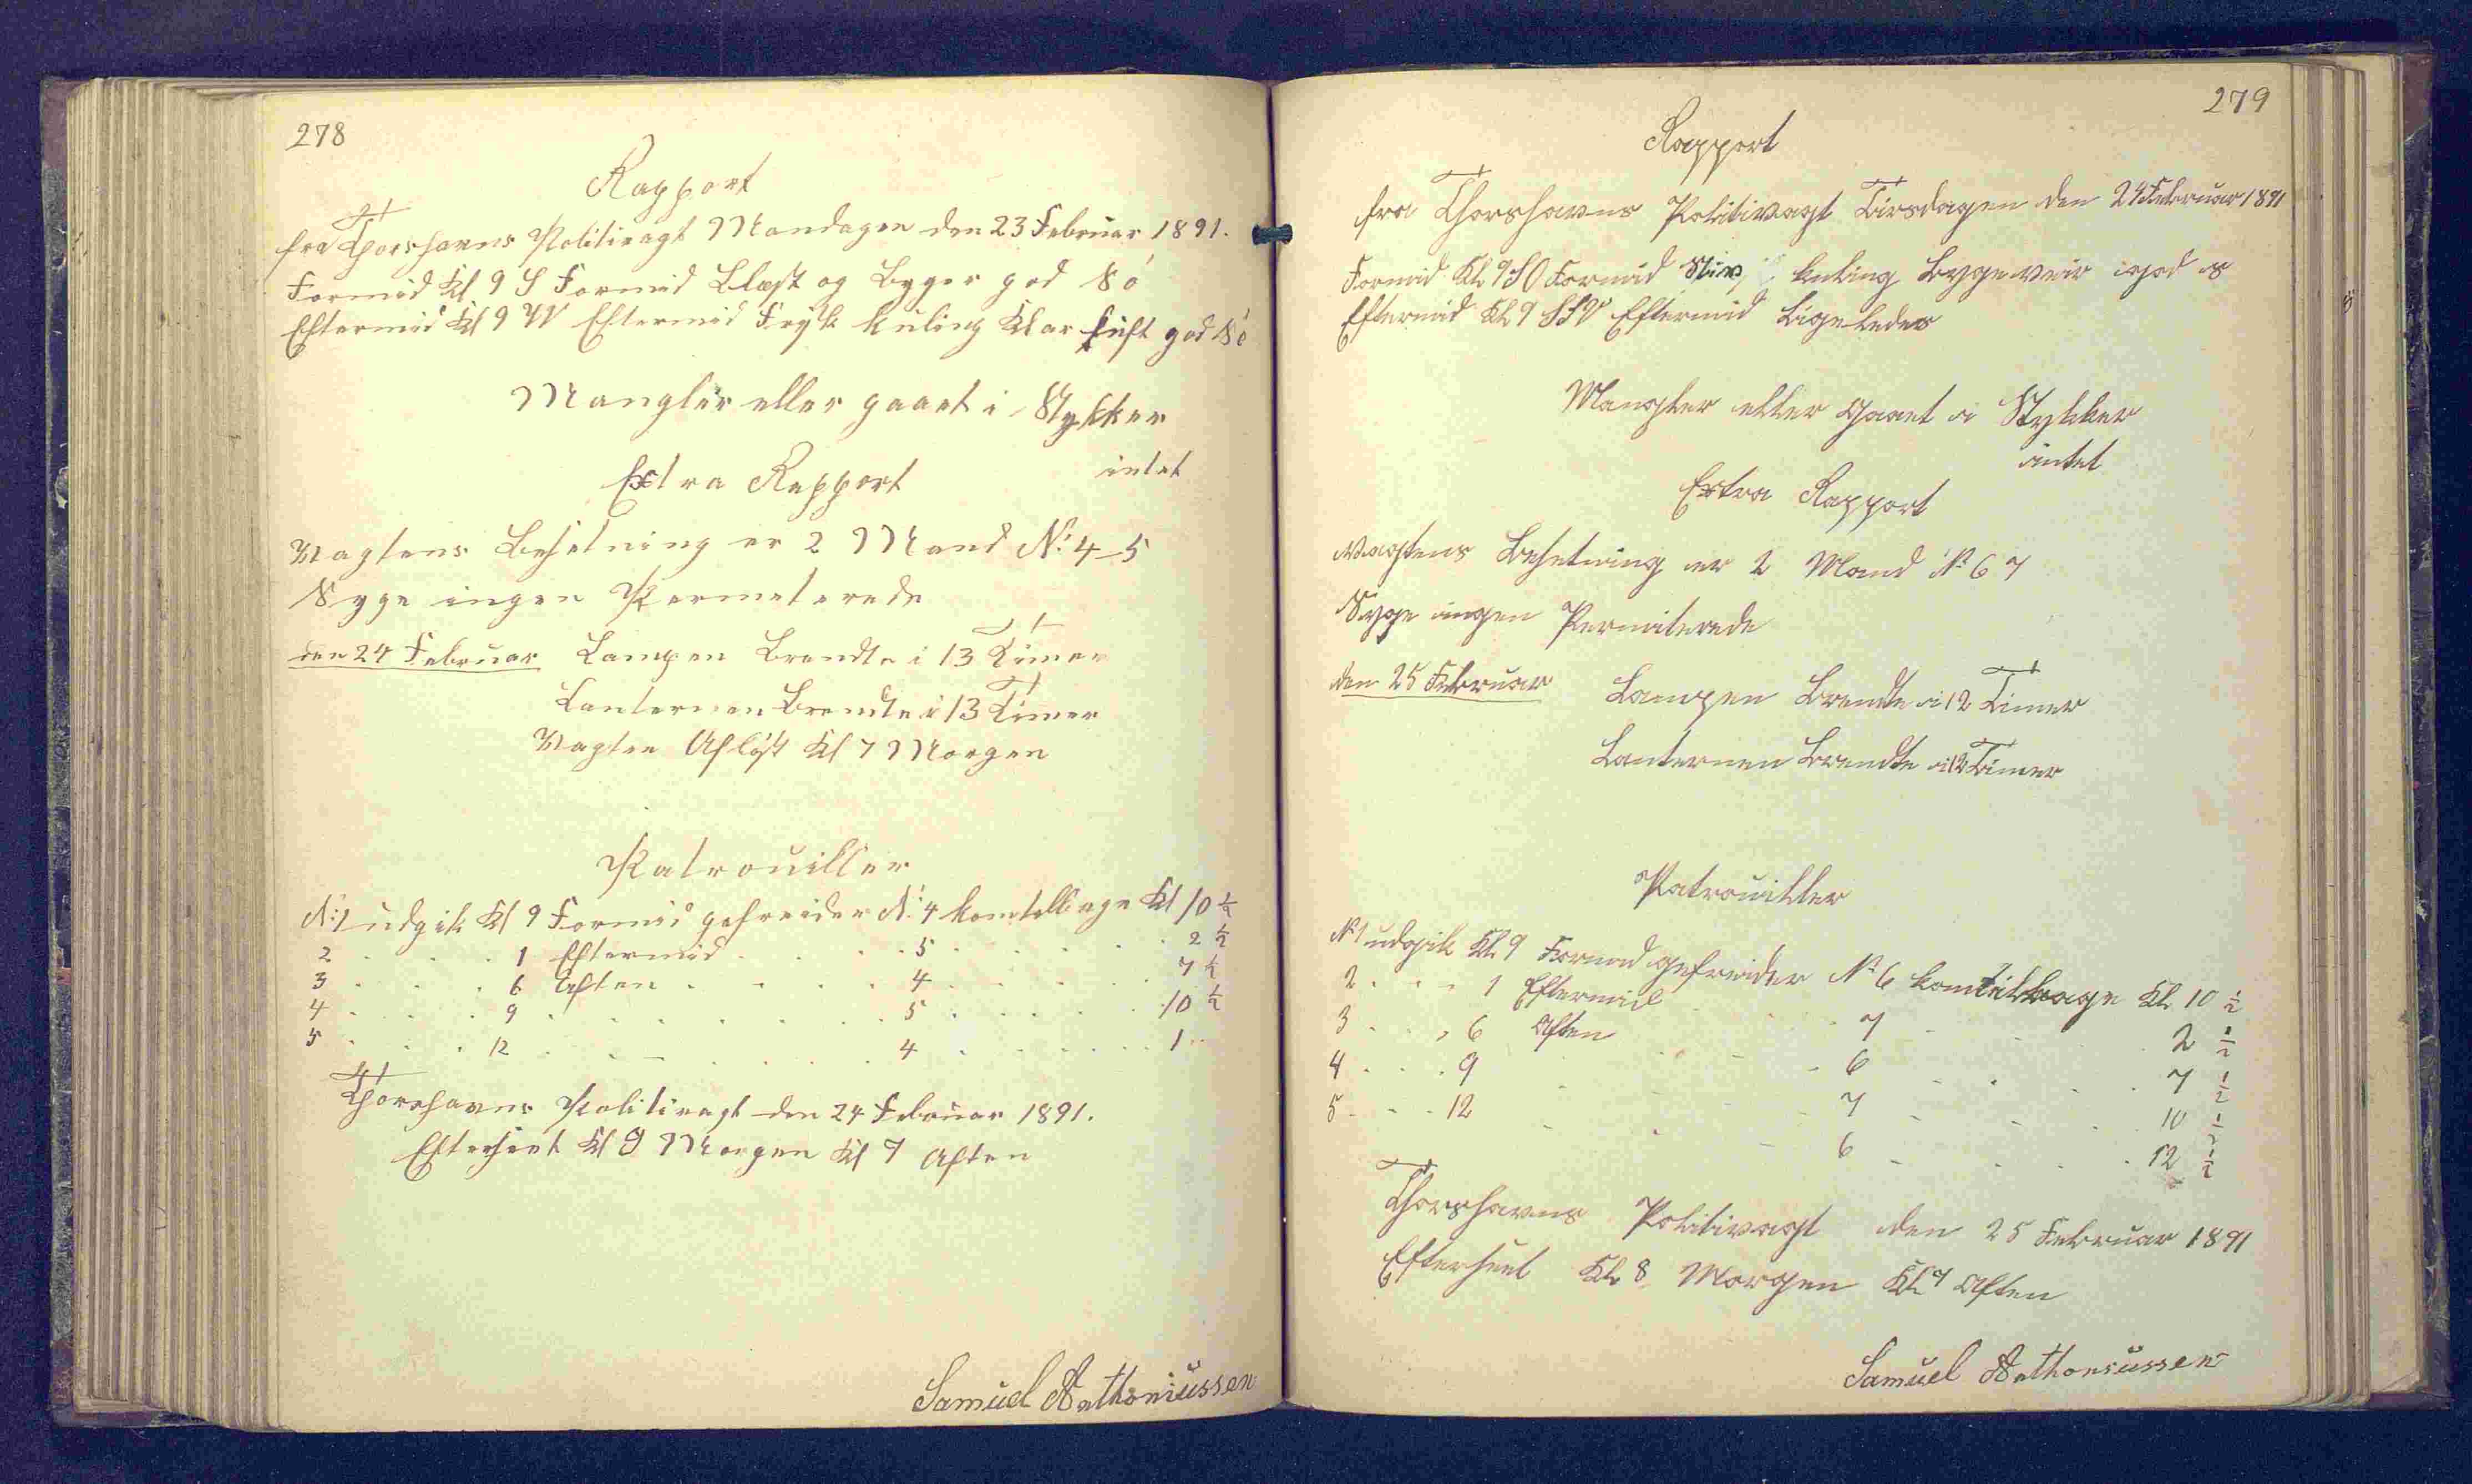 278
Rapport
fra Thorshavns Politivagt Mandagen den 23 Februar 1891.
Formid Kl 9 S Formid Blæst og Byger god Sö
Eftermid Kl 9 W Eftermid Frisk Kuling Klar Luft god Sö
Mangler eller gaaet i Stykker
intet
Extra Rapport
Vagtens Besetning er 2 Mand N: 4-5
Syge ingen Permeterede
den 24 Februar Lampen Brendte i 13 Timer
Lanternen Brendte i 13 Timer
Vagten Aflöst Kl 7 Morgen
Patrouiller
N: 1 udgik Kl 9 Formid gefreider N: 4 kom tilbage Kl 10 ½
2 . . . 1 Eftermid . . . 5 . . . . 2 ½
3 . . . 6 Aften . . . . 4 . . . . 7 ½
4 . . . 9 . . . . . . . 5 . . . . 10 ½
5 . . . 12 . . . . . . 4 . . . . 1 . .
Thorshavns Politivagt den 24 Februar 1891.
Efterseet Kl 9 Morgen Kl 7 Aften
Samuel Anthoniussen
279
Rapport
fra Thorshavns Politivagt Tirsdagen den 24 Februar 1891
Formid Kl 9 SO Formid Stiv Kuling Bygeveir god s
Eftermid Kl 9 SSV Eftermid Ligeledes
Mangler eller gaaet i Stykker
intet
Extra Rapport
Vagtens Besetning er 2 Mand N: 6 7
Syge ingen Permiterede
den 25 Februar Lampen Brendte i 12 Timer
Lanternen Brendte i 12 Timer
Patrouiller
N: 1 udgik Kl. 9 Formid gefreider N: 6 kom tilbage Kl. 10 ½
2 . . . 1 Eftermid . . . 7 . . . . 2 ½
3 . . . 6 Aften . . . . 6 . . . . 7 ½
4 . . . 9 . . . . . . . 7 . . . . 10 ½
5 . . . 12 . . . . . . 6 . . . . 12 ½
Thorshavns Politivagt den 25 Februar 1891
Efterseet Kl 8 Morgen Kl 7 Aften
Samuel Anthoniussen